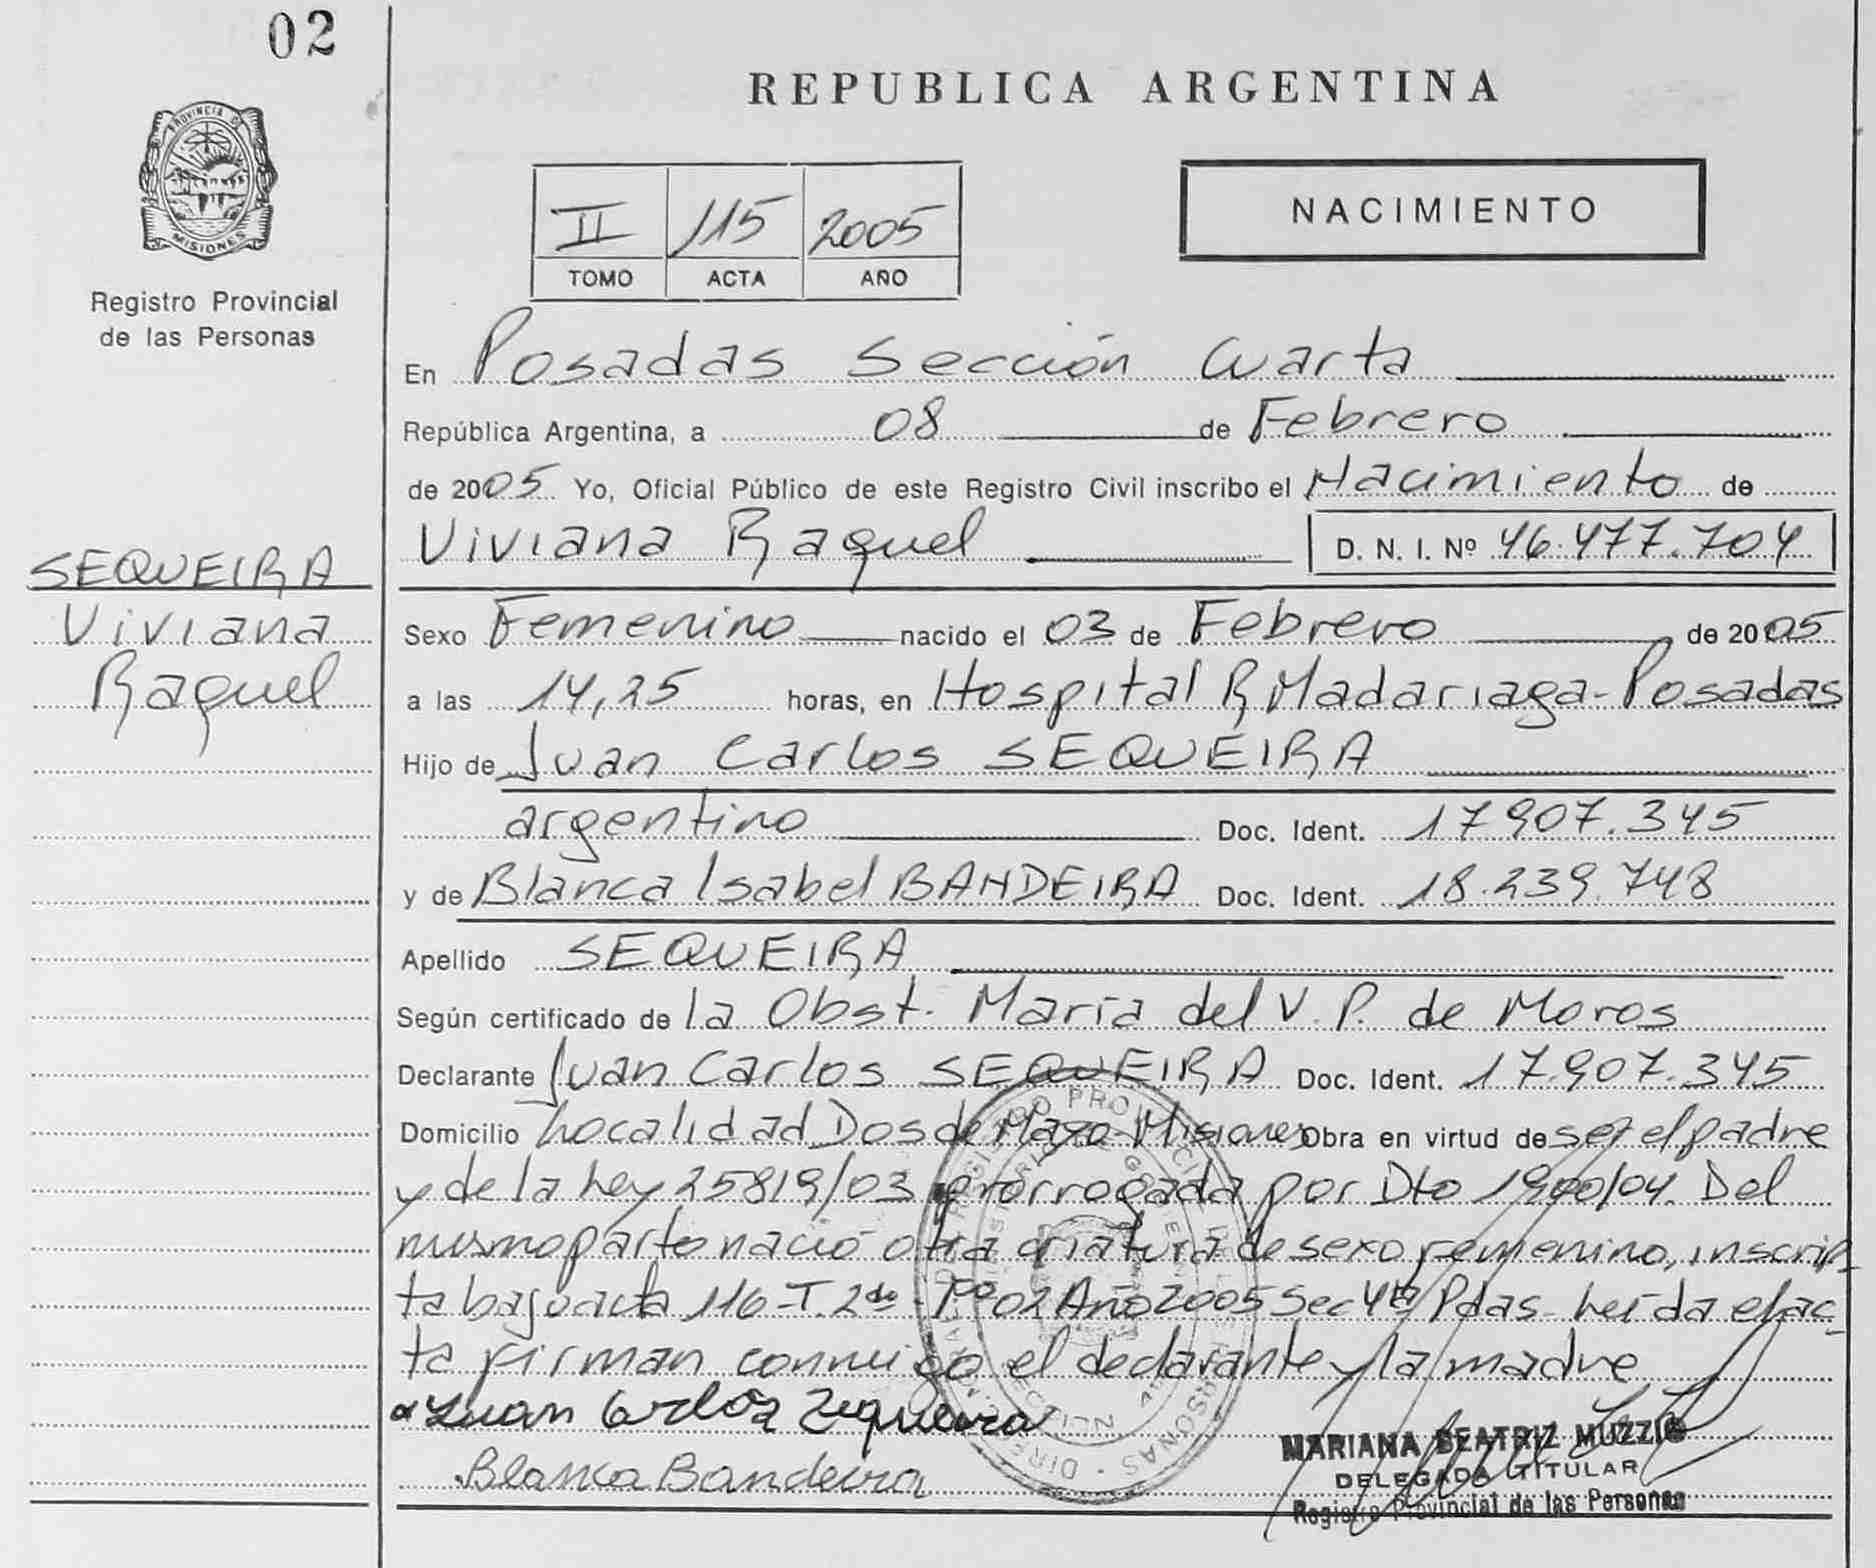 02
PROVINCIA DE
MISIONES
Registro Provincial
de las Personas
REPUBLICA ARGENTINA
II 115 2005
TOMO ACTA AÑO
NACIMIENTO
En Posadas Sección Cuarta
República Argentina, a 08 de Febrero
de 2005 Yo, Oficial Público de este Registro Civil inscribo el Nacimiento de
Viviana Raquel D. N. I. Nº 46.477.704
SEQUEIRA
Viviana
Raquel
Sexo Femenino nacido el 03 de Febrero de 2005
a las 14,25 horas, en Hospital R. Madariaga-Posadas
Hijo de Juan Carlos SEQUEIRA
argentino Doc. Ident. 17.907.345
y de Blanca Isabel BANDEIRA Doc. Ident. 18.239.748
Apellido SEQUEIRA
Según certificado de la Obst. María del V. P. de Moros
Declarante Juan Carlos SEQUEIRA Doc. Ident. 17.907.345
Domicilio Localidad Dos de Mayo-Misiones Obra en virtud de ser el padre
y de la Ley 25819/03 prorrogada por Dto 1900/04. Del
mismo parto nació otra criatura de sexo femenino, inscrip-
ta bajo acta 116-T. 2do- Fº 02 Año 2005 Sec 4ta Pdas- Leída el ac-
ta firman conmigo el declarante y la madre
Juan Carlos Zequeira
Blanca Bandeira
MARIANA BEATRIZ MUZZIO
DELEGADA TITULAR
Registro Provincial de las Personas